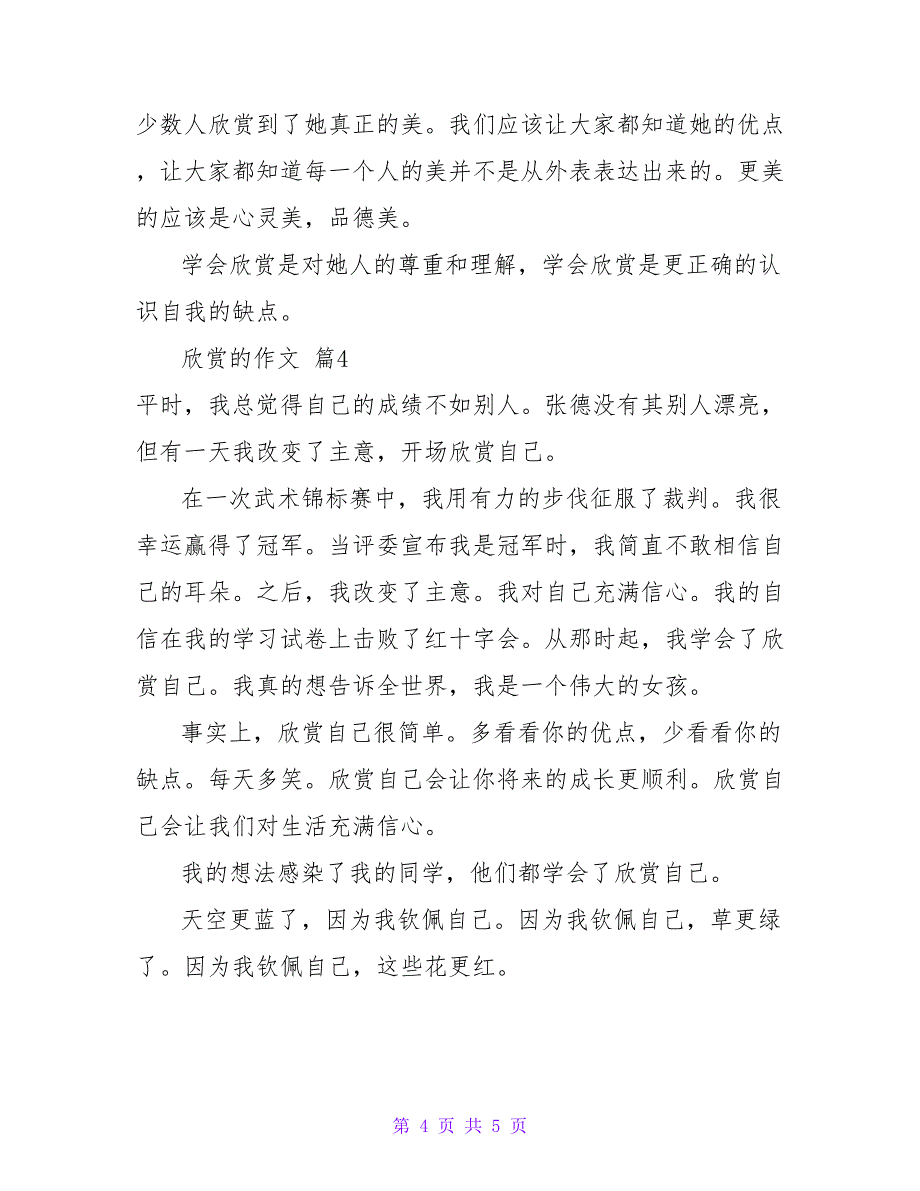 少数人欣赏到了她真正的美。我们应该让大家都知道她的优点
，让大家都知道每一个人的美并不是从外表表达出来的。更美
的应该是心灵美，品德美。
学会欣赏是对她人的尊重和理解，学会欣赏是更正确的认
识自我的缺点。
欣赏的作文 篇4
平时，我总觉得自己的成绩不如别人。张德没有其别人漂亮，
但有一天我改变了主意，开场欣赏自己。
在一次武术锦标赛中，我用有力的步伐征服了裁判。我很
幸运赢得了冠军。当评委宣布我是冠军时，我简直不敢相信自
己的耳朵。之后，我改变了主意。我对自己充满信心。我的自
信在我的学习试卷上击败了红十字会。从那时起，我学会了欣
赏自己。我真的想告诉全世界，我是一个伟大的女孩。
事实上，欣赏自己很简单。多看看你的优点，少看看你的
缺点。每天多笑。欣赏自己会让你将来的成长更顺利。欣赏自
己会让我们对生活充满信心。
我的想法感染了我的同学，他们都学会了欣赏自己。
天空更蓝了，因为我钦佩自己。因为我钦佩自己，草更绿
了。因为我钦佩自己，这些花更红。
第 4 页 共 5 页